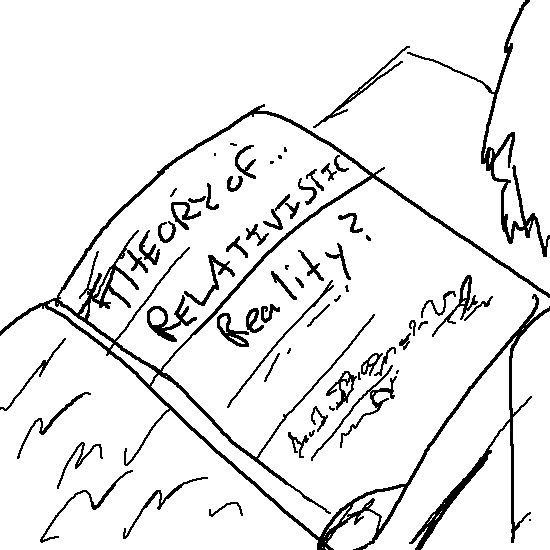 THEORY OF...
RELATIVISTIC
Reality?